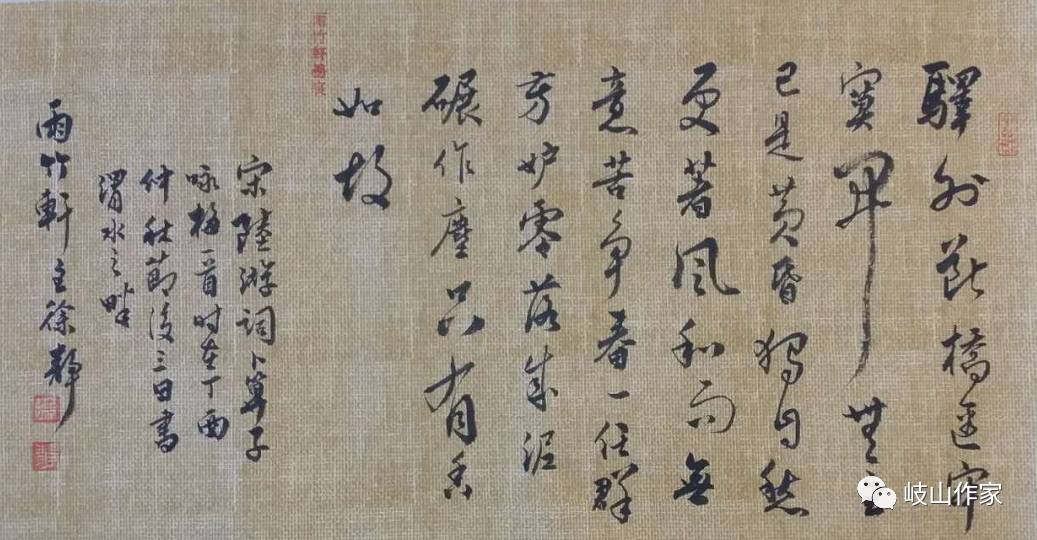 驛外斷橋邊寂
寞開無主
已是黄昏獨自愁
更著風和雨無
意苦爭春一任群
芳妒零落成泥
碾作塵只有香
如故
宋陸游詞卜算子
咏梅一首时在丁酉
仲秋節後三日書
渭水之畔
雨竹軒主徐靜
岐山作家